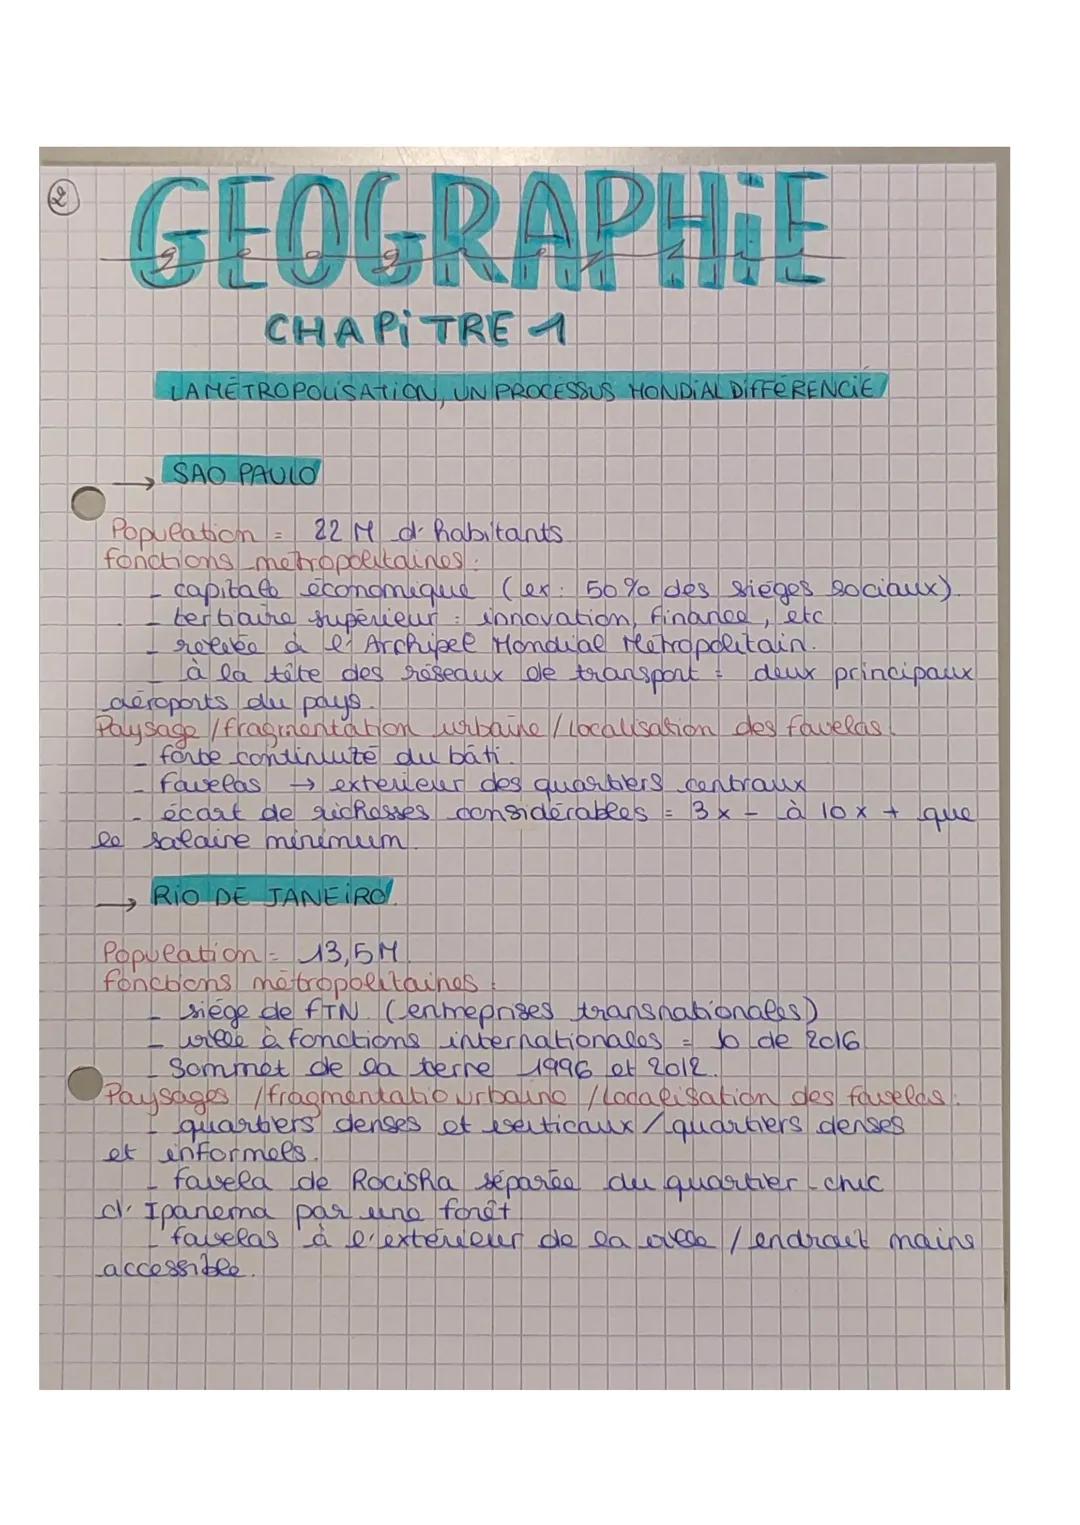 2
GEOGRAPHiE
geographie
CHAPiTRE 1
LA MÉTROPOLISATION, UN PROCESSUS MONDIAL DIFFÉRENCIÉ
→ SAO PAULO
Population = 22 M d'habitants
fonctions métropolitaines :
- capitale économique (ex : 50% des sièges sociaux).
- tertiaire supérieur : innovation, finance, etc
- reliée à l'Archipel Mondial Métropolitain.
- à la tête des réseaux de transport : deux principaux
aéroports du pays.
Paysage / fragmentation urbaine / localisation des favelas.
- forte continuité du bâti.
- favelas → extérieur des quartiers centraux
- écart de richesses considérables = 3 x - à 10 x + que
le salaire minimum.
→ RIO DE JANEIRO.
Population = 13,5 M.
fonctions métropolitaines :
- siège de FTN. (entreprises transnationales)
- ville à fonctions internationales = Jo de 2016
- Sommet de la terre 1996 et 2012.
Paysages / fragmentatio urbaine / Localisation des favelas :
- quartiers denses et verticaux / quartiers denses
et informels.
- favela de Rocisha séparée du quartier chic
d'Ipanema par une forêt
- favelas à l'extérieur de la ville / endroit moins
accessible.